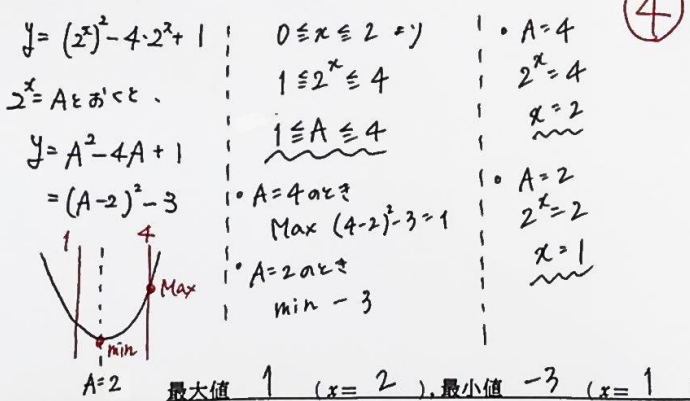 ④
y = (2^x)^2 - 4・2^x + 1
2^x = A とおくと、
y = A^2 - 4A + 1
= (A-2)^2 - 3
1 4
Max
min
A=2
0 ≦ x ≦ 2 より
1 ≦ 2^x ≦ 4
1 ≦ A ≦ 4
・A=4のとき
Max (4-2)^2 - 3 = 1
・A=2のとき
min - 3
・A=4
2^x = 4
x = 2
・A=2
2^x = 2
x = 1
最大値 1 (x= 2 ), 最小値 -3 (x= 1